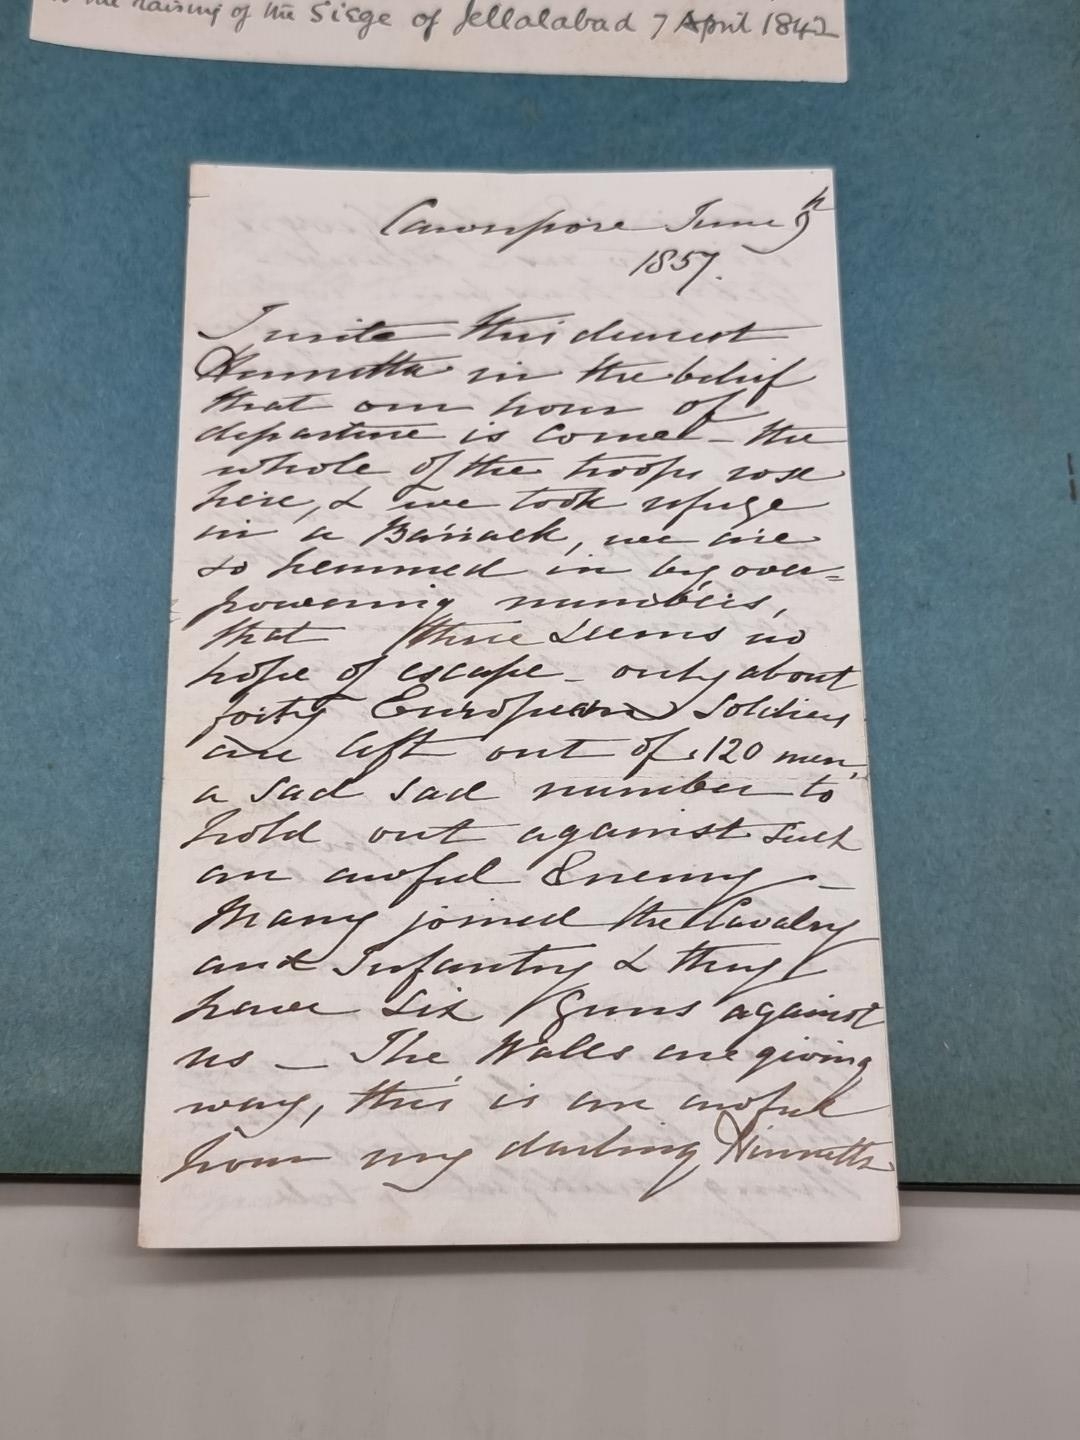 to the raising of the Siege of Jellalabad 7 April 1842
Cawnpore June 9th
1857.
I write this dearest
Henrietta in the belief
that our hour of
departure is come - the
whole of the troops rose
here, & we took refuge
in a Barrack, we are
so hemmed in by over=
powering numbers,
that there seems no
hope of escape - only about
forty European Soldiers
are left out of 120 men,
a sad sad number to
hold out against such
an awful Enemy -
Many joined the Cavalry
and Infantry & they
have six Guns against
us - The Walls are giving
way, this is an awful
hour my darling Henrietta